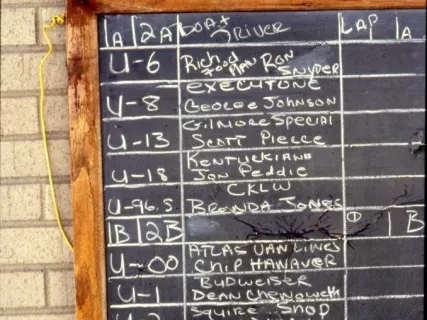 1A 2A BOAT DRIVER LAP 1A
U-6 Richfood
Plan Ron Snyder
U-8 EXECUTONE
George Johnson
U-13 Gilmore Special
Scott Pierce
U-18 Kentuckiana
Jon Peddie
U-96.5 CKLW
Brenda Jones
1B 2B 1B
U-00 ATLAS VAN LINES
CHIP HANAUER
U-1 BUDWEISER
DEAN CHENOWETH
Squire Shop